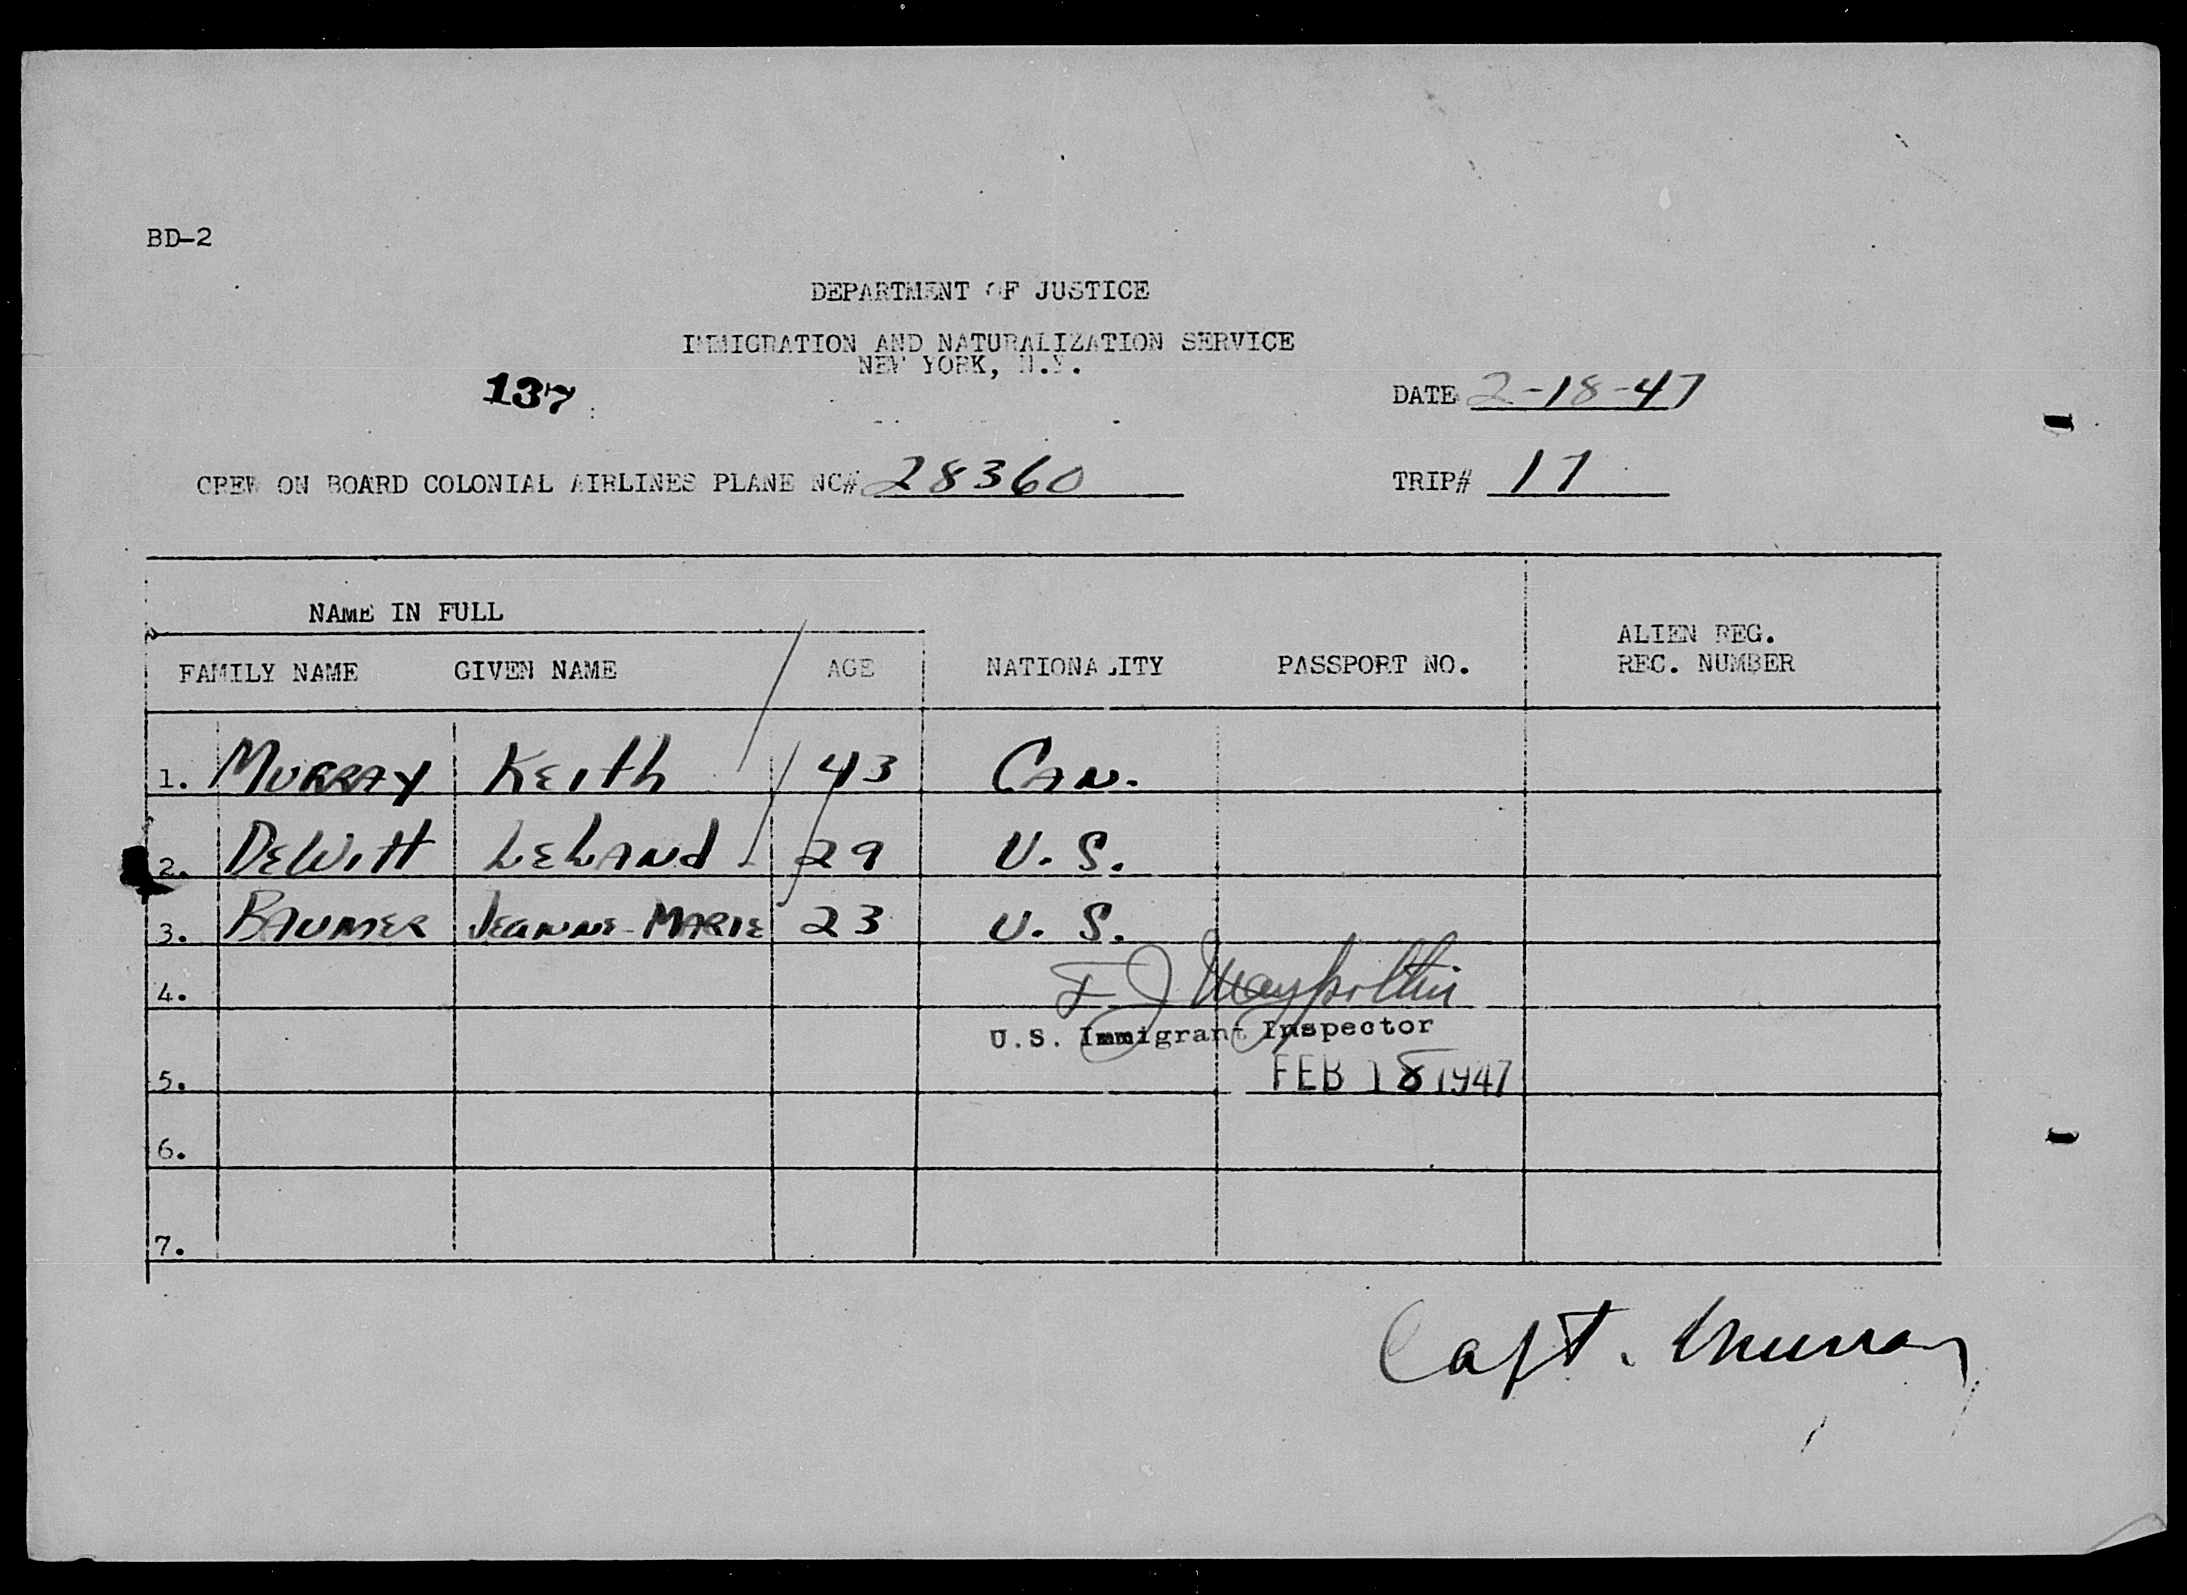 BD-2
DEPARTMENT OF JUSTICE
IMMIGRATION AND NATURALIZATION SERVICE
NEW YORK, N.Y.
137
DATE 2-18-47
CREW ON BOARD COLONIAL AIRLINES PLANE NC# 28360 TRIP# 17
NAME IN FULL
FAMILY NAME GIVEN NAME AGE NATIONALITY PASSPORT NO. ALIEN REG. REC. NUMBER
1. MURRAY KEITH 43 CAN.
2. DEWITT LELAND 29 U.S.
3. BAUMER JEANNE-MARIE 23 U.S.
4.
U.S. Immigrant Inspector
5. FEB 18 1947
6.
7.
Capt. Murray